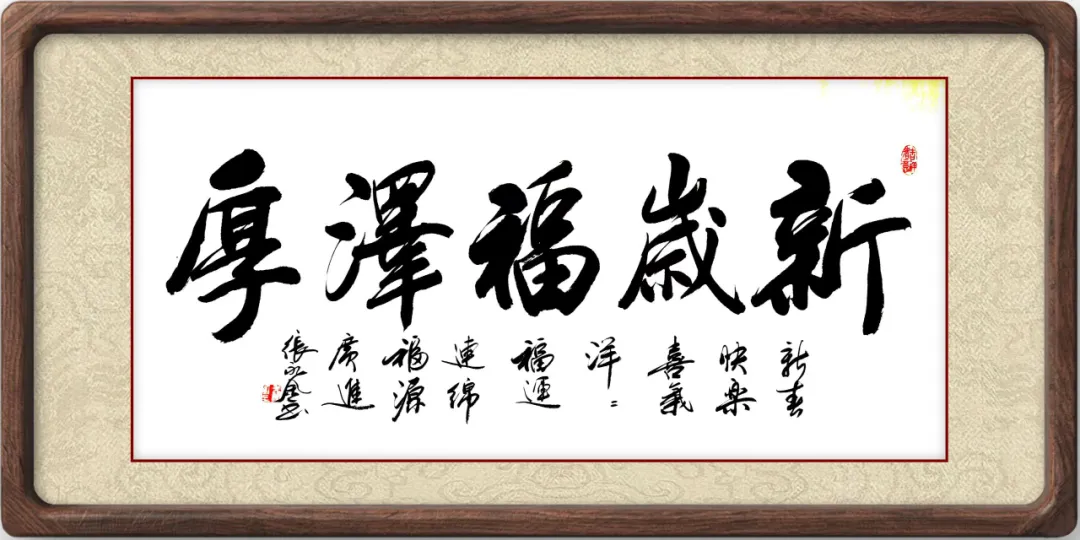 新歲福澤厚
新春
快樂
喜氣
洋〻
福運
連綿
福源
廣進
張